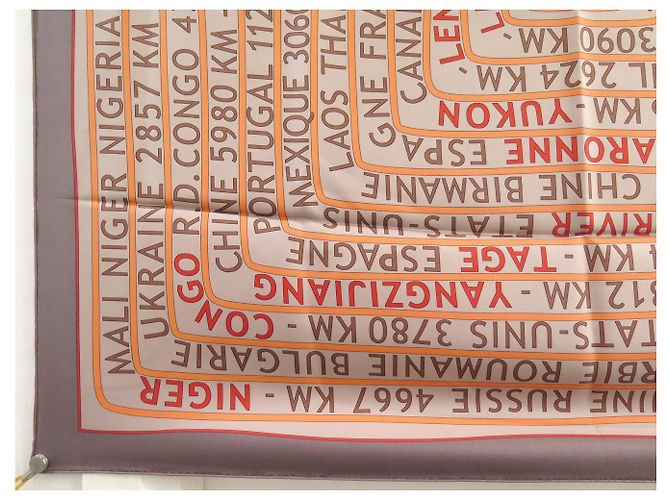 INE RUSSIE 4667 KM - NIGER MALI NIGER NIGERIA
RBIE ROUMANIE BULGARIE UKRAINE 2857 KM
TATS-UNIS 3780 KM - CONGO R.D.CONGO 4
812 KM - YANGZIJIANG CHINE 5980 KM -
4 KM - TAGE ESPAGNE PORTUGAL 112
RIVER ETATS-UNIS MEXIQUE 306
CHINE BIRMANIE LAOS THA
ARONNE ESPAGNE FRA
KM - YUKON CANA
IL 2624 KM - LEN
3090 KM -